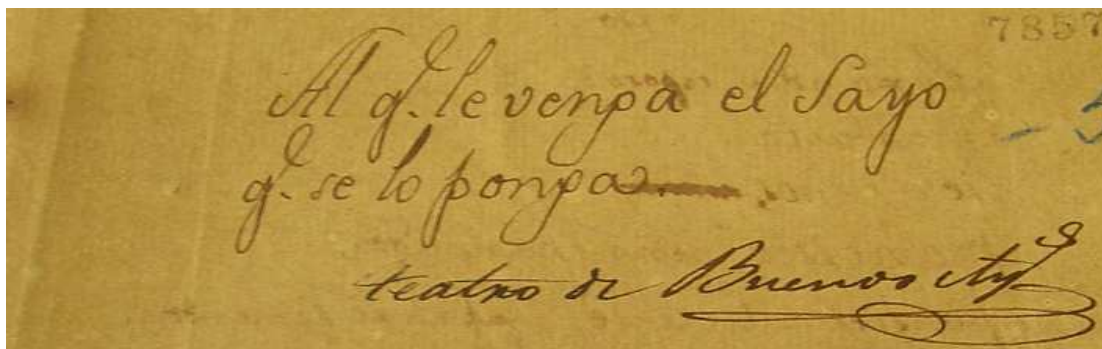 7857
Al q.^e le venga el Sayo
q.^e se lo ponga
teatro de Buenos Ay.^s